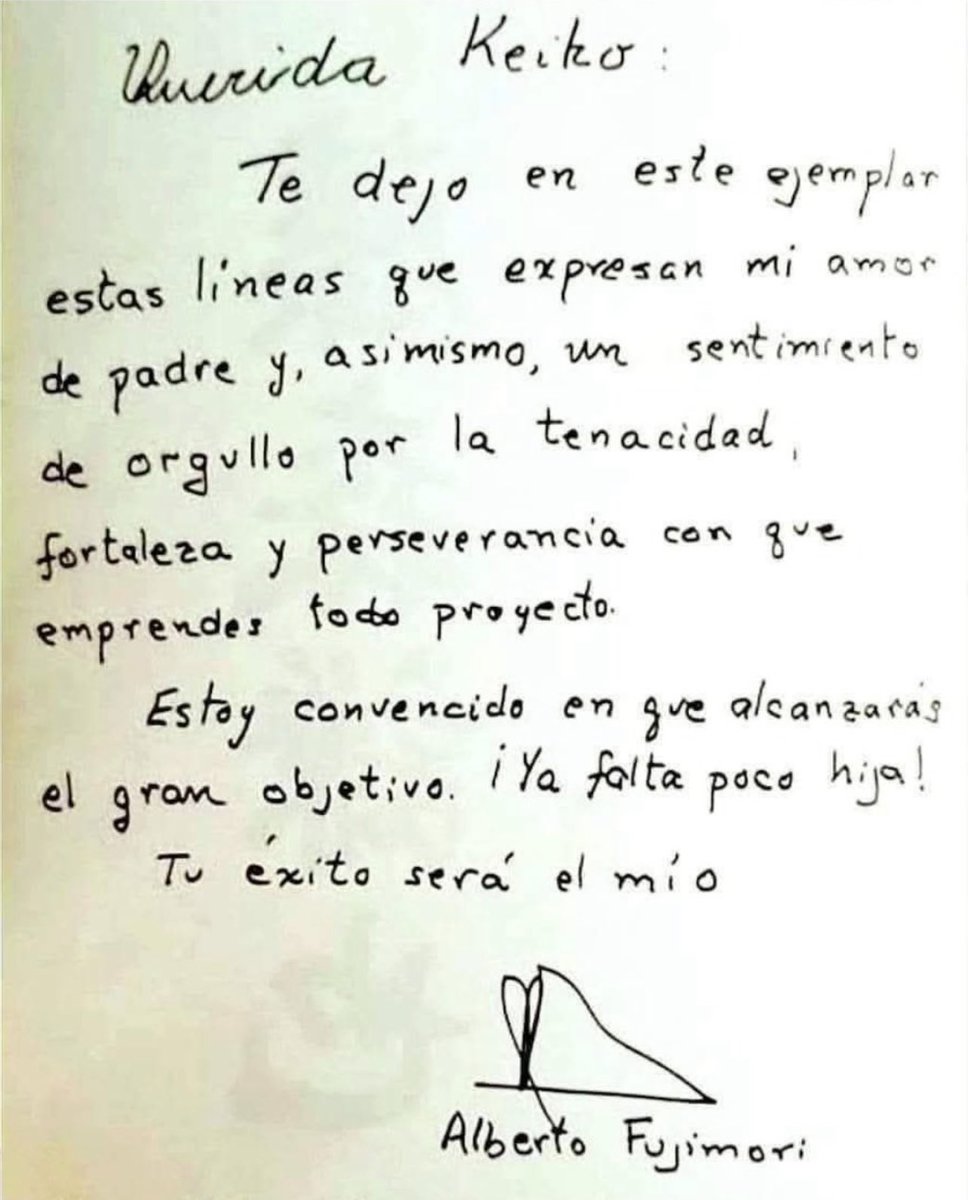 Querida Keiko:
Te dejo en este ejemplar
estas líneas que expresan mi amor
de padre y, asimismo, un sentimiento
de orgullo por la tenacidad,
fortaleza y perseverancia con que
emprendes todo proyecto.
Estoy convencido en que alcanzarás
el gran objetivo. ¡Ya falta poco hija!
Tu éxito será el mío
Alberto Fujimori